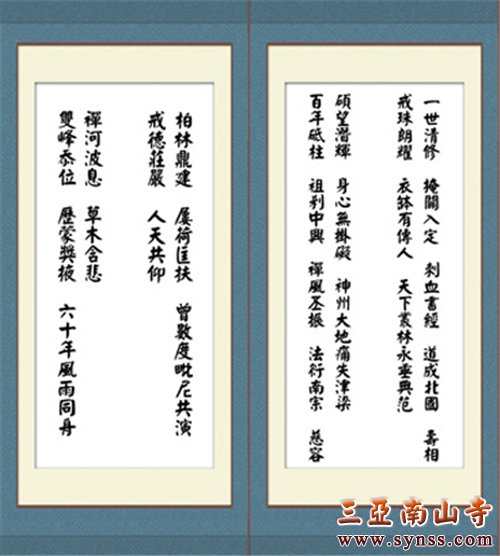 一世清修 掩關入定 刺血書經 道成北國 壽相
戒珠朗耀 衣鉢有傳人 天下叢林永垂典范
碩望潛輝 身心無掛礙 神州大地痛失津梁
百年砥柱 祖刹中興 禪風丕振 法衍南宗 慈容
柏林鼎建 屢荷匡扶 曾數度毗尼共演
戒德莊嚴 人天共仰
禪河波息 草木含悲
雙峰忝位 歷蒙獎掖 六十年風雨同舟
三亞南山寺
www.synss.com